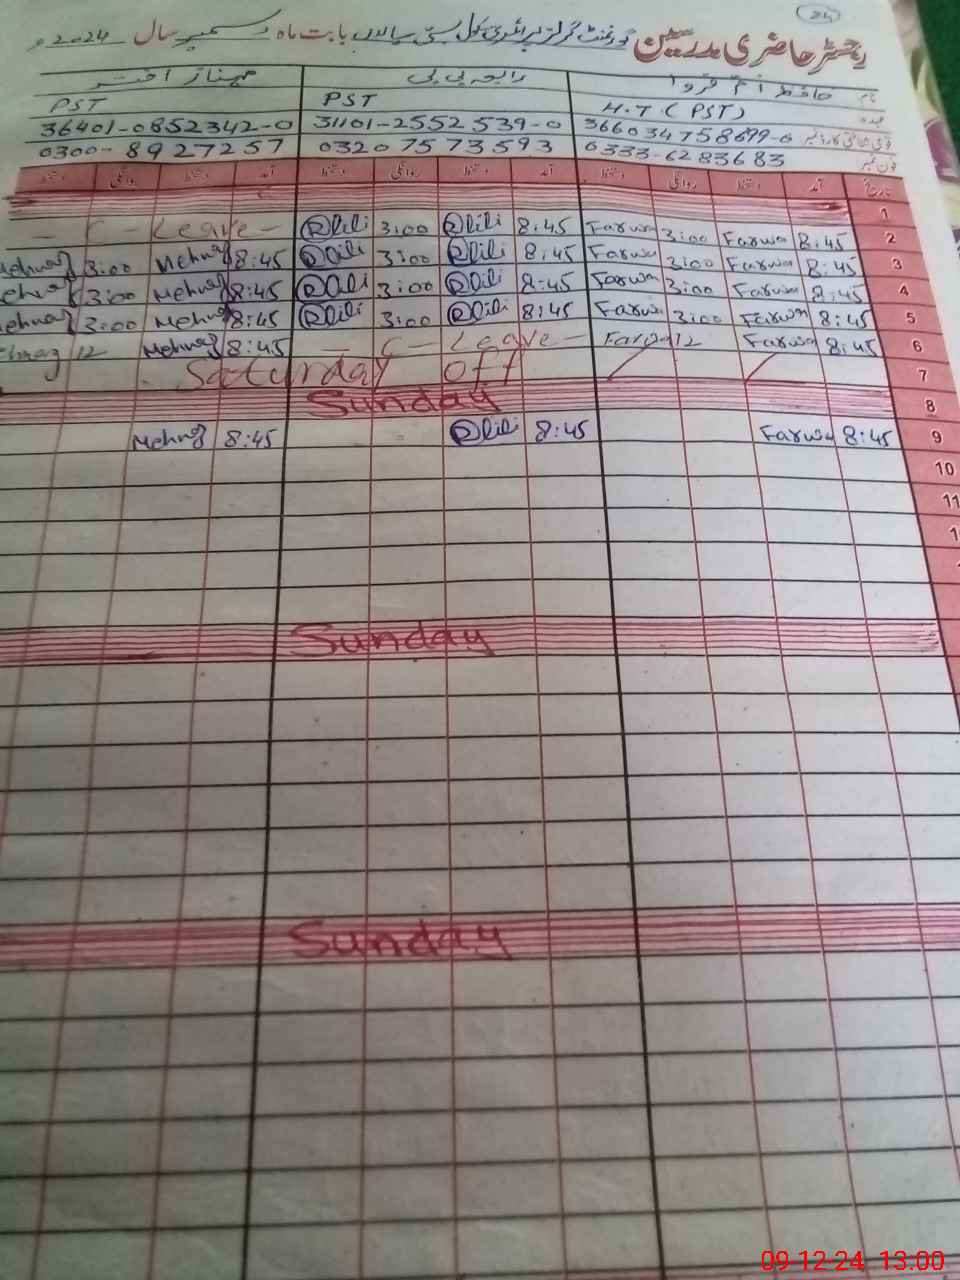 24
رجسٹر حاضری مدرسین گورنمنٹ گرلز پرائمری سکول بستی سیالاں بابت ماہ دسمبر سال 2024ء
نام حافظہ ام فروا رابعہ بی بی مہناز اختر
عہدہ H.T.(PST) PST PST
قومی شناختی کارڈ نمبر 366034758699-0 31101-2552539-0 36401-0852342-0
فون نمبر 0333-6283683 0320 7573593 0300-8927257
تاریخ آمد دستخط روانگی دستخط آمد دستخط روانگی دستخط آمد دستخط روانگی دستخط
1
2 8:45 Farwa 3:00 Farwa 8:45 3:00 C-Leave-
3 8:45 Farwa 3:00 Farwa 8:45 3:00 8:45 Mehnaz 3:00 Mehnaz
4 8:45 Farwa 3:00 Farwa 8:45 3:00 8:45 Mehnaz 3:00 Mehnaz
5 8:45 Farwa 3:00 Farwa 8:45 3:00 8:45 Mehnaz 3:00 Mehnaz
6 8:45 Farwa 12 Farwa - C-Leave- 8:45 Mehnaz 12
7 Saturday Off
8 Sunday
9 8:45 Farwa 8:45 8:45 Mehnaz
10
11
Sunday
Sunday
09 12 24 13.00